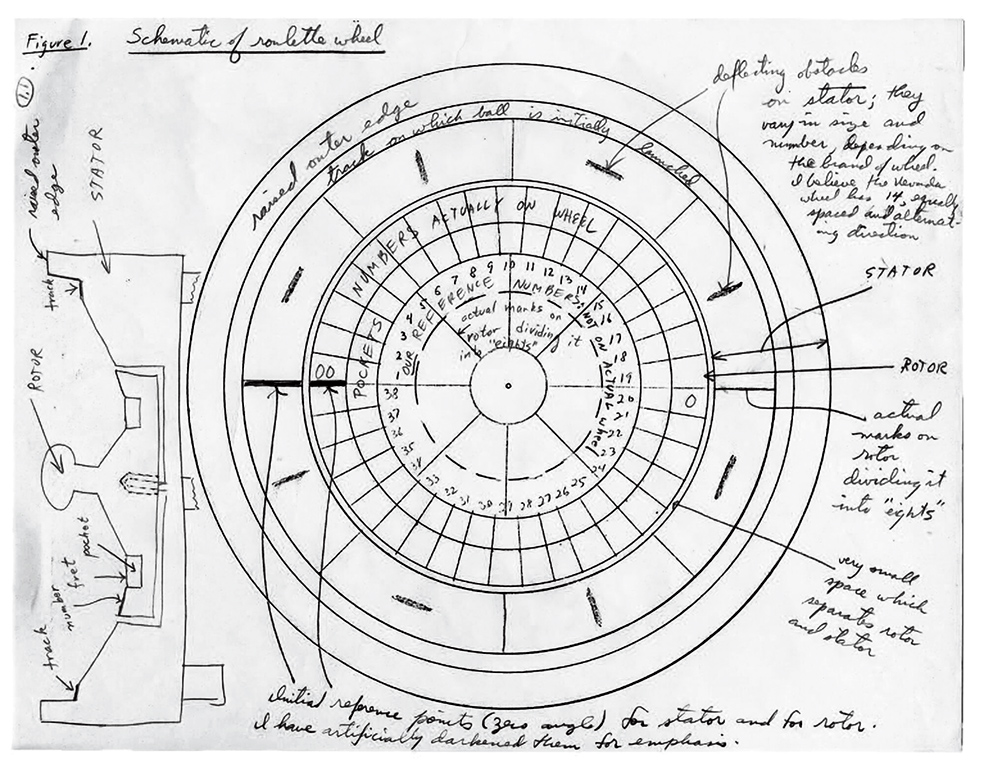 Figure 1. Schematic of roulette wheel
1.1
raised outer
edge
STATOR
track
ROTOR
pocket
fret
number
track
raised outer edge
track on which ball is initially launched
NUMBERS ACTUALLY ON WHEEL
POCKETS
00
0
1 2 3 4 5 6 7 8 9 10 11 12 13 14 15 16 17 18 19 20 21 22 23 24 25 26 27 28 29 30 31 32 33 34 35 36 37 38
OUR REFERENCE NUMBERS: NOT ON ACTUAL wheel
actual marks on
rotor dividing it
into "eights"
deflecting obstacles
on stator; they
vary in size and
number, depending on
the brand of wheel.
I believe the Nevada
wheel has 14, equally
spaced and alternat-
ing direction
STATOR
ROTOR
actual
marks on
rotor
dividing it
into "eights"
very small
space which
separates rotor
and stator
Initial reference points (zero angle) for stator and for rotor.
I have artificially darkened them for emphasis.